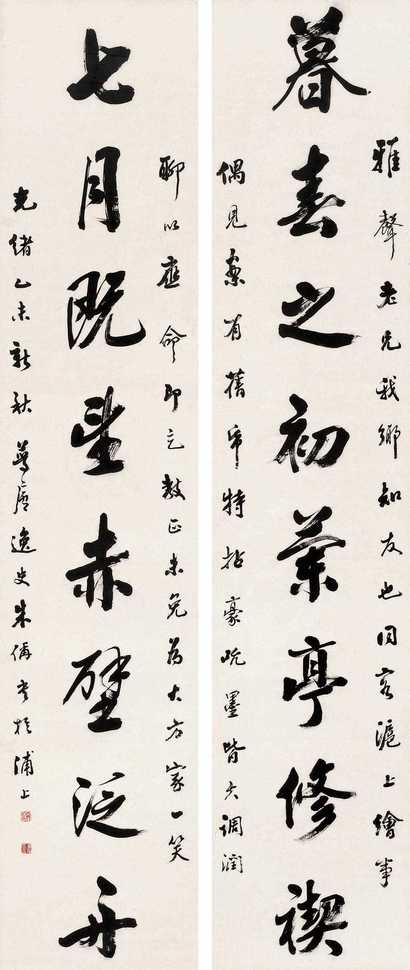 雅聲老兄我鄉知友也同客滬上繪事
暮春之初蘭亭修禊
偶見案有舊帋特拈豪吮墨調潤
聊以應命即乞教正未免為大方家一笑
七月既望赤壁泛舟
光緒乙未新秋夢廬逸史朱偁書於浦上